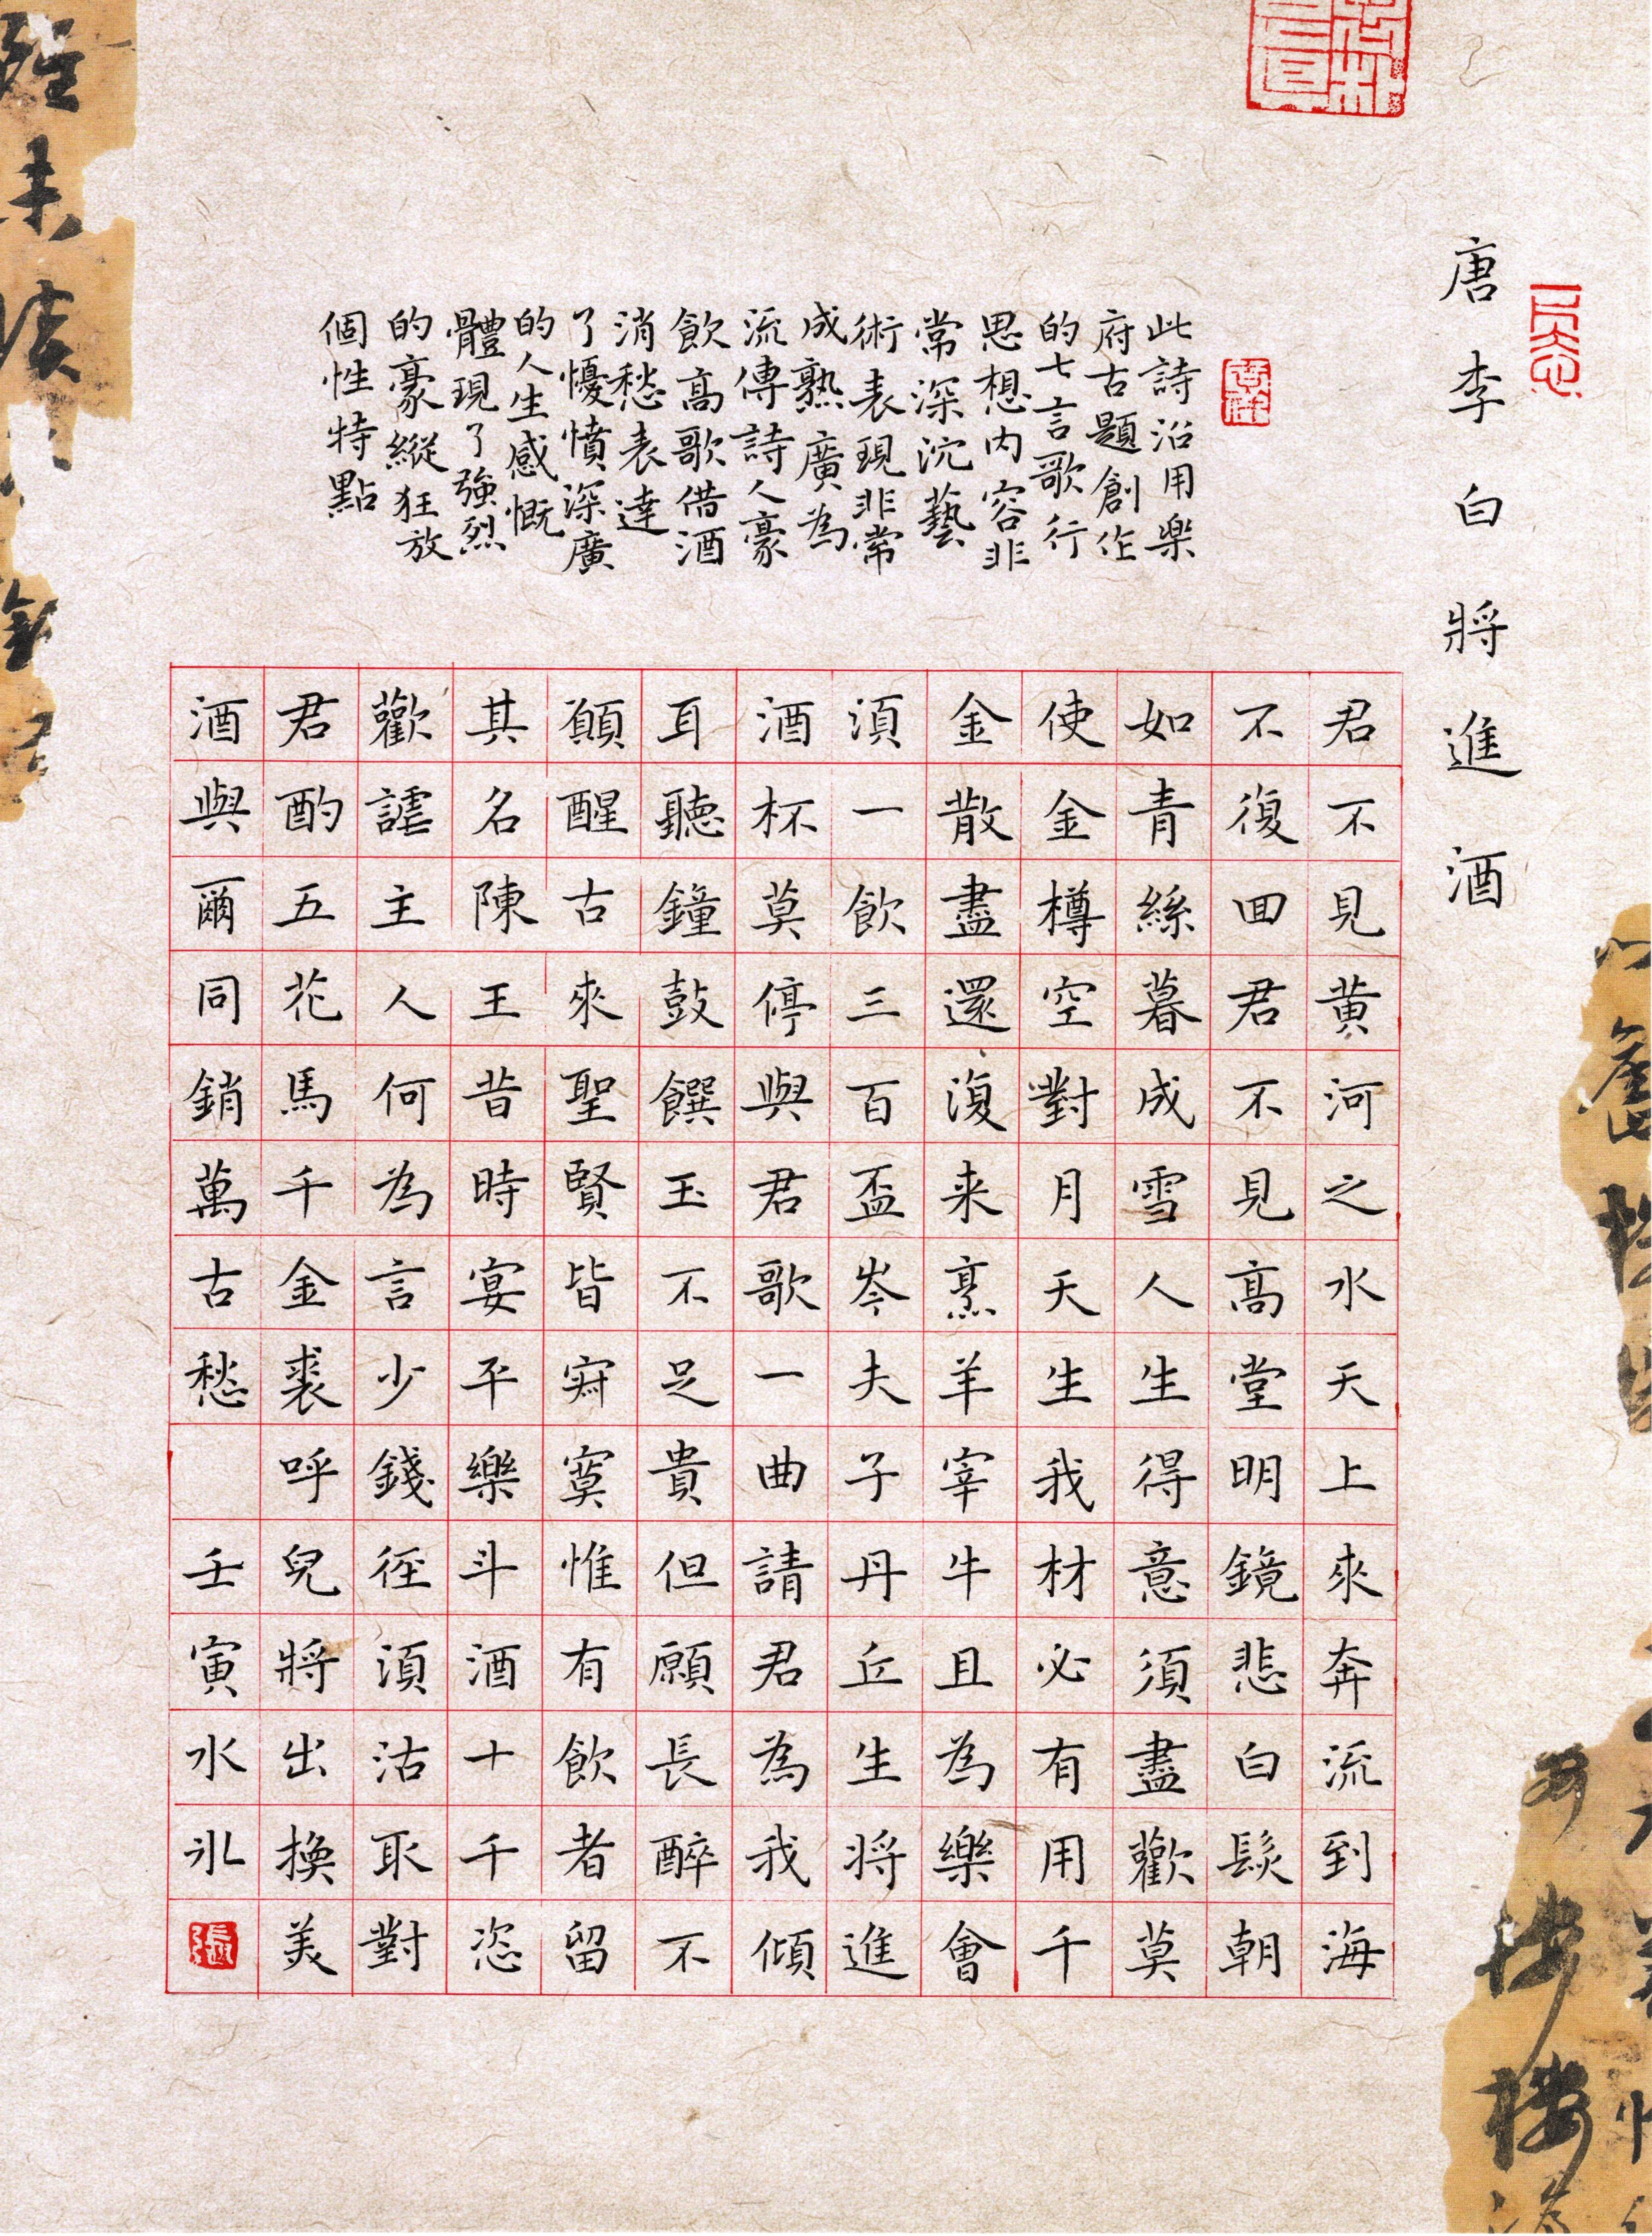 唐李白將進酒
此詩沿用樂
府古題創作
的七言歌行
思想内容非
常深沉藝
術表現非常
成熟廣為
流傳詩人豪
飲高歌借酒
消愁表達
了憂憤深廣
的人生感慨
體現了強烈
的豪縱狂放
個性特點
君不見黃河之水天上來奔流到海
不復回君不見高堂明鏡悲白髮朝
如青絲暮成雪人生得意須盡歡莫
使金樽空對月天生我材必有用千
金散盡還復来烹羊宰牛且為樂會
須一飲三百盃岑夫子丹丘生將進
酒杯莫停與君歌一曲請君為我傾
耳聽鐘鼓饌玉不足貴但願長醉不
願醒古來聖賢皆寂寞惟有飲者留
其名陳王昔時宴平樂斗酒十千恣
歡謔主人何為言少錢徑須沽取對
君酌五花馬千金裘呼兒將出換美
酒與爾同銷萬古愁 壬寅水冰
張